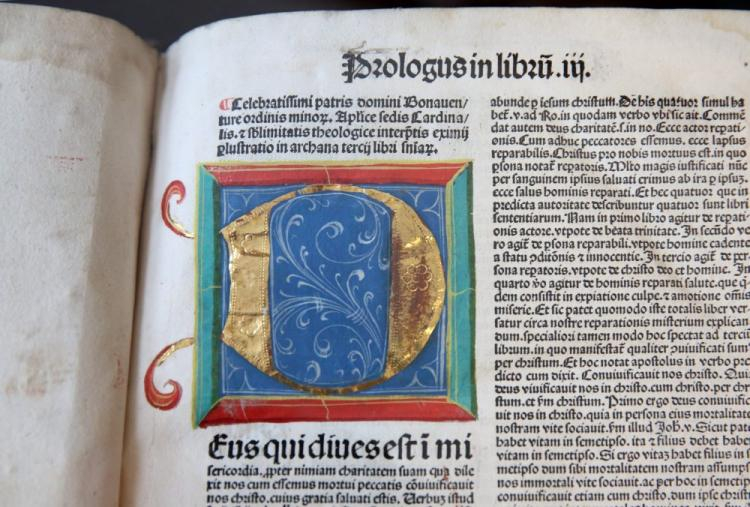 Prologus in librū .iij.
¶Celebratissimi patris domini Bonauen-
ture ordinis minoꝝ. Aplice sedis Cardina-
lis. ⁊ sblimitatis theologice interp̄tis eximij
ꝑlustratio in archana tercij libri sniaꝝ.
D
Eus qui diues est ī mi
sericordia. ꝓpter nimiam charitatem suam qua dile
xit nos cum essemus mortui peccatis cōuiuificauit
nos christo. cuius gratia saluati estis. Uerbuz istud
abunde ꝑ iesum christum. De his quatuor simul ha
bet̄. v. ad Ro. in quodam verbo vbi sic ait. Commē
dat autem deus charitatē. s. in no. Ecce actor reꝑati-
onis. Cum adhuc peccatores essemus. ecce lapsus
reparabilis. Christus pro nobis mortuus est. in quo
ꝑsona notat̄ reꝑatoris. Multo magis iustificati nūc
per sanguinem ipsius saluati erimus ab ira ꝑ ipsuz.
ecce salus hominis reparati. Et hec quatuor que in
predicta autoritate describuntur quatuor sunt libri
sententiarum. Nam in primo libro agitur de reꝑati-
onis actore. vtpote de beata trinitate. In secūdo vo
ro agit̄ de ꝑsona reparabili. vtpote homine cadente
a statu ꝯditonis ⁊ innocentie. In tercio agit̄ de per-
sona reꝑatoris. vtpote de christo deo et homine. In
quarto v̄o agitur de hominis reparati salute. que q̄
dem consistit in expiatione culpe. ⁊ amotione om̄is
miserie. Et sic patet quomodo iste totalis liber ver-
satur circa nostre reparationis misterium explican
dum. specialiori tamen modo hoc spectat ad terciū
librum. in quo manifestat̄ qualiter ꝯuiuificati sum⁹
per christum. Et hec notat apostolus in verbo pre
dicto cum dixit. Conuiuificauit nos christo. Qui
deus viuificauit nos in christo. cum christo. per chri
stum. et ꝟm christum. Primo ergo deus conuiuifi
uit nos in christo. quia in persona eius mortalitatē
nostram vite sociauit. ꝟm illud Joh̄. v. Sicut pat
habet vitam in semetipso. ita ⁊ filius debet habe
vitam in semetipso. Si ergo vitaz habet filius in s
metipso dum sibi mortalitatem nostram assumps
nos immortali vite sociauit. ac per hoc in semetip
conuiuificauit etiam cum christo. dum ipse christ